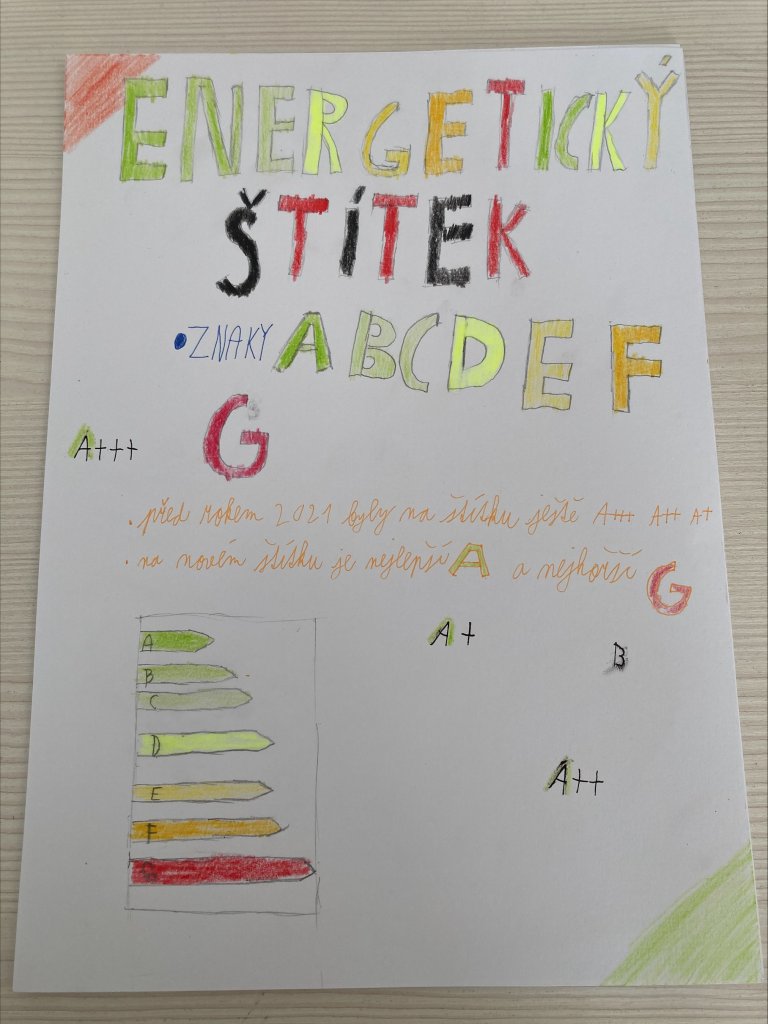 ENERGETICKÝ
ŠTÍTEK
•ZNAKY A B C D E F
G
A+++
• před rokem 2021 byly na štítku ještě A+++ A++ A+
• na novém štítku je nejlepší A a nejhorší G
A
B
C
D
E
F
G
A+
B
A++